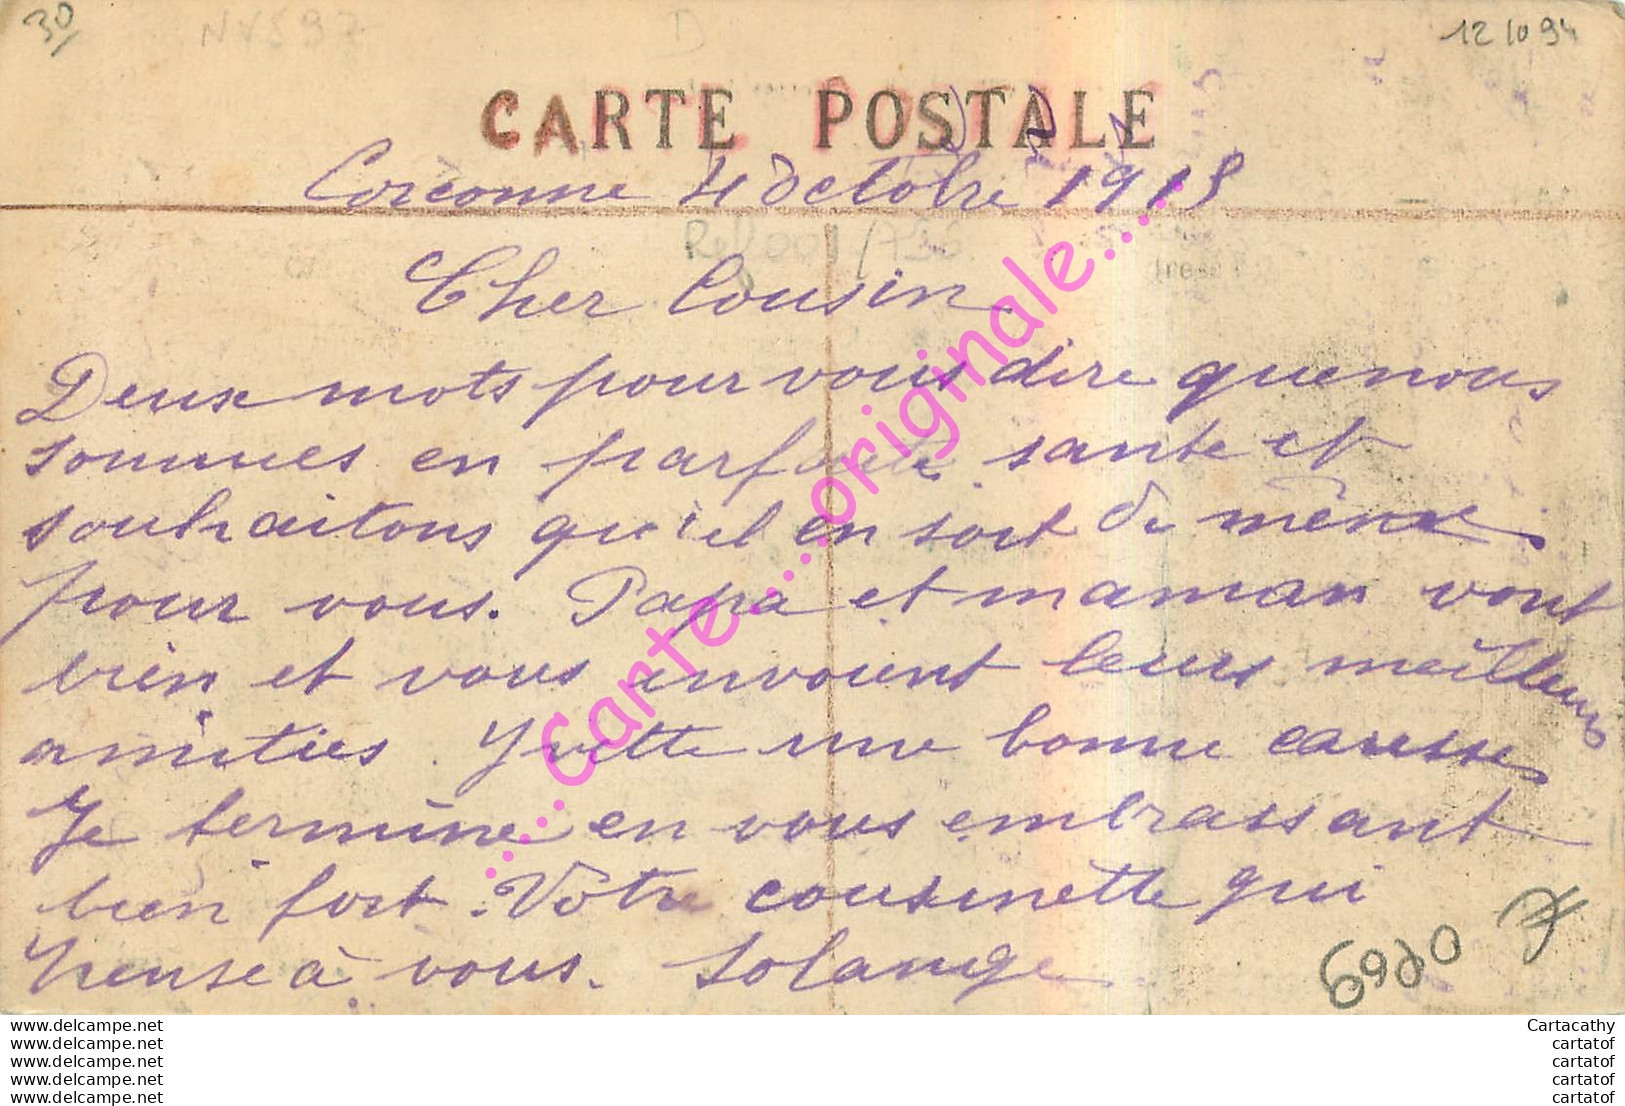 30
12 10 94
D
CARTE POSTALE
Corconne 4 Octobre 1915
Ref 001/736
Cher Cousin
Deux mots pour vous dire que nous
sommes en parfaite sante et
souhaitons qu'il en soit de même
pour vous. Papa et maman vont
bien et vous envoient leurs meilleurs
amities. Yvette une bonne caresse
Je termine en vous embrassant
bien fort. Votre cousinette qui
pense à vous. Solange
....Carte....originale....
www.delcampe.net
www.delcampe.net
www.delcampe.net
www.delcampe.net
www.delcampe.net
Cartacathy
cartatof
cartatof
cartatof
cartatof